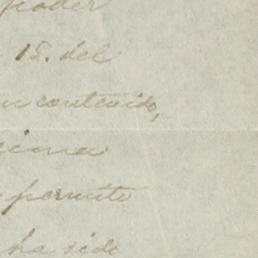 poder
15. del
contenido,
permite
ha sido